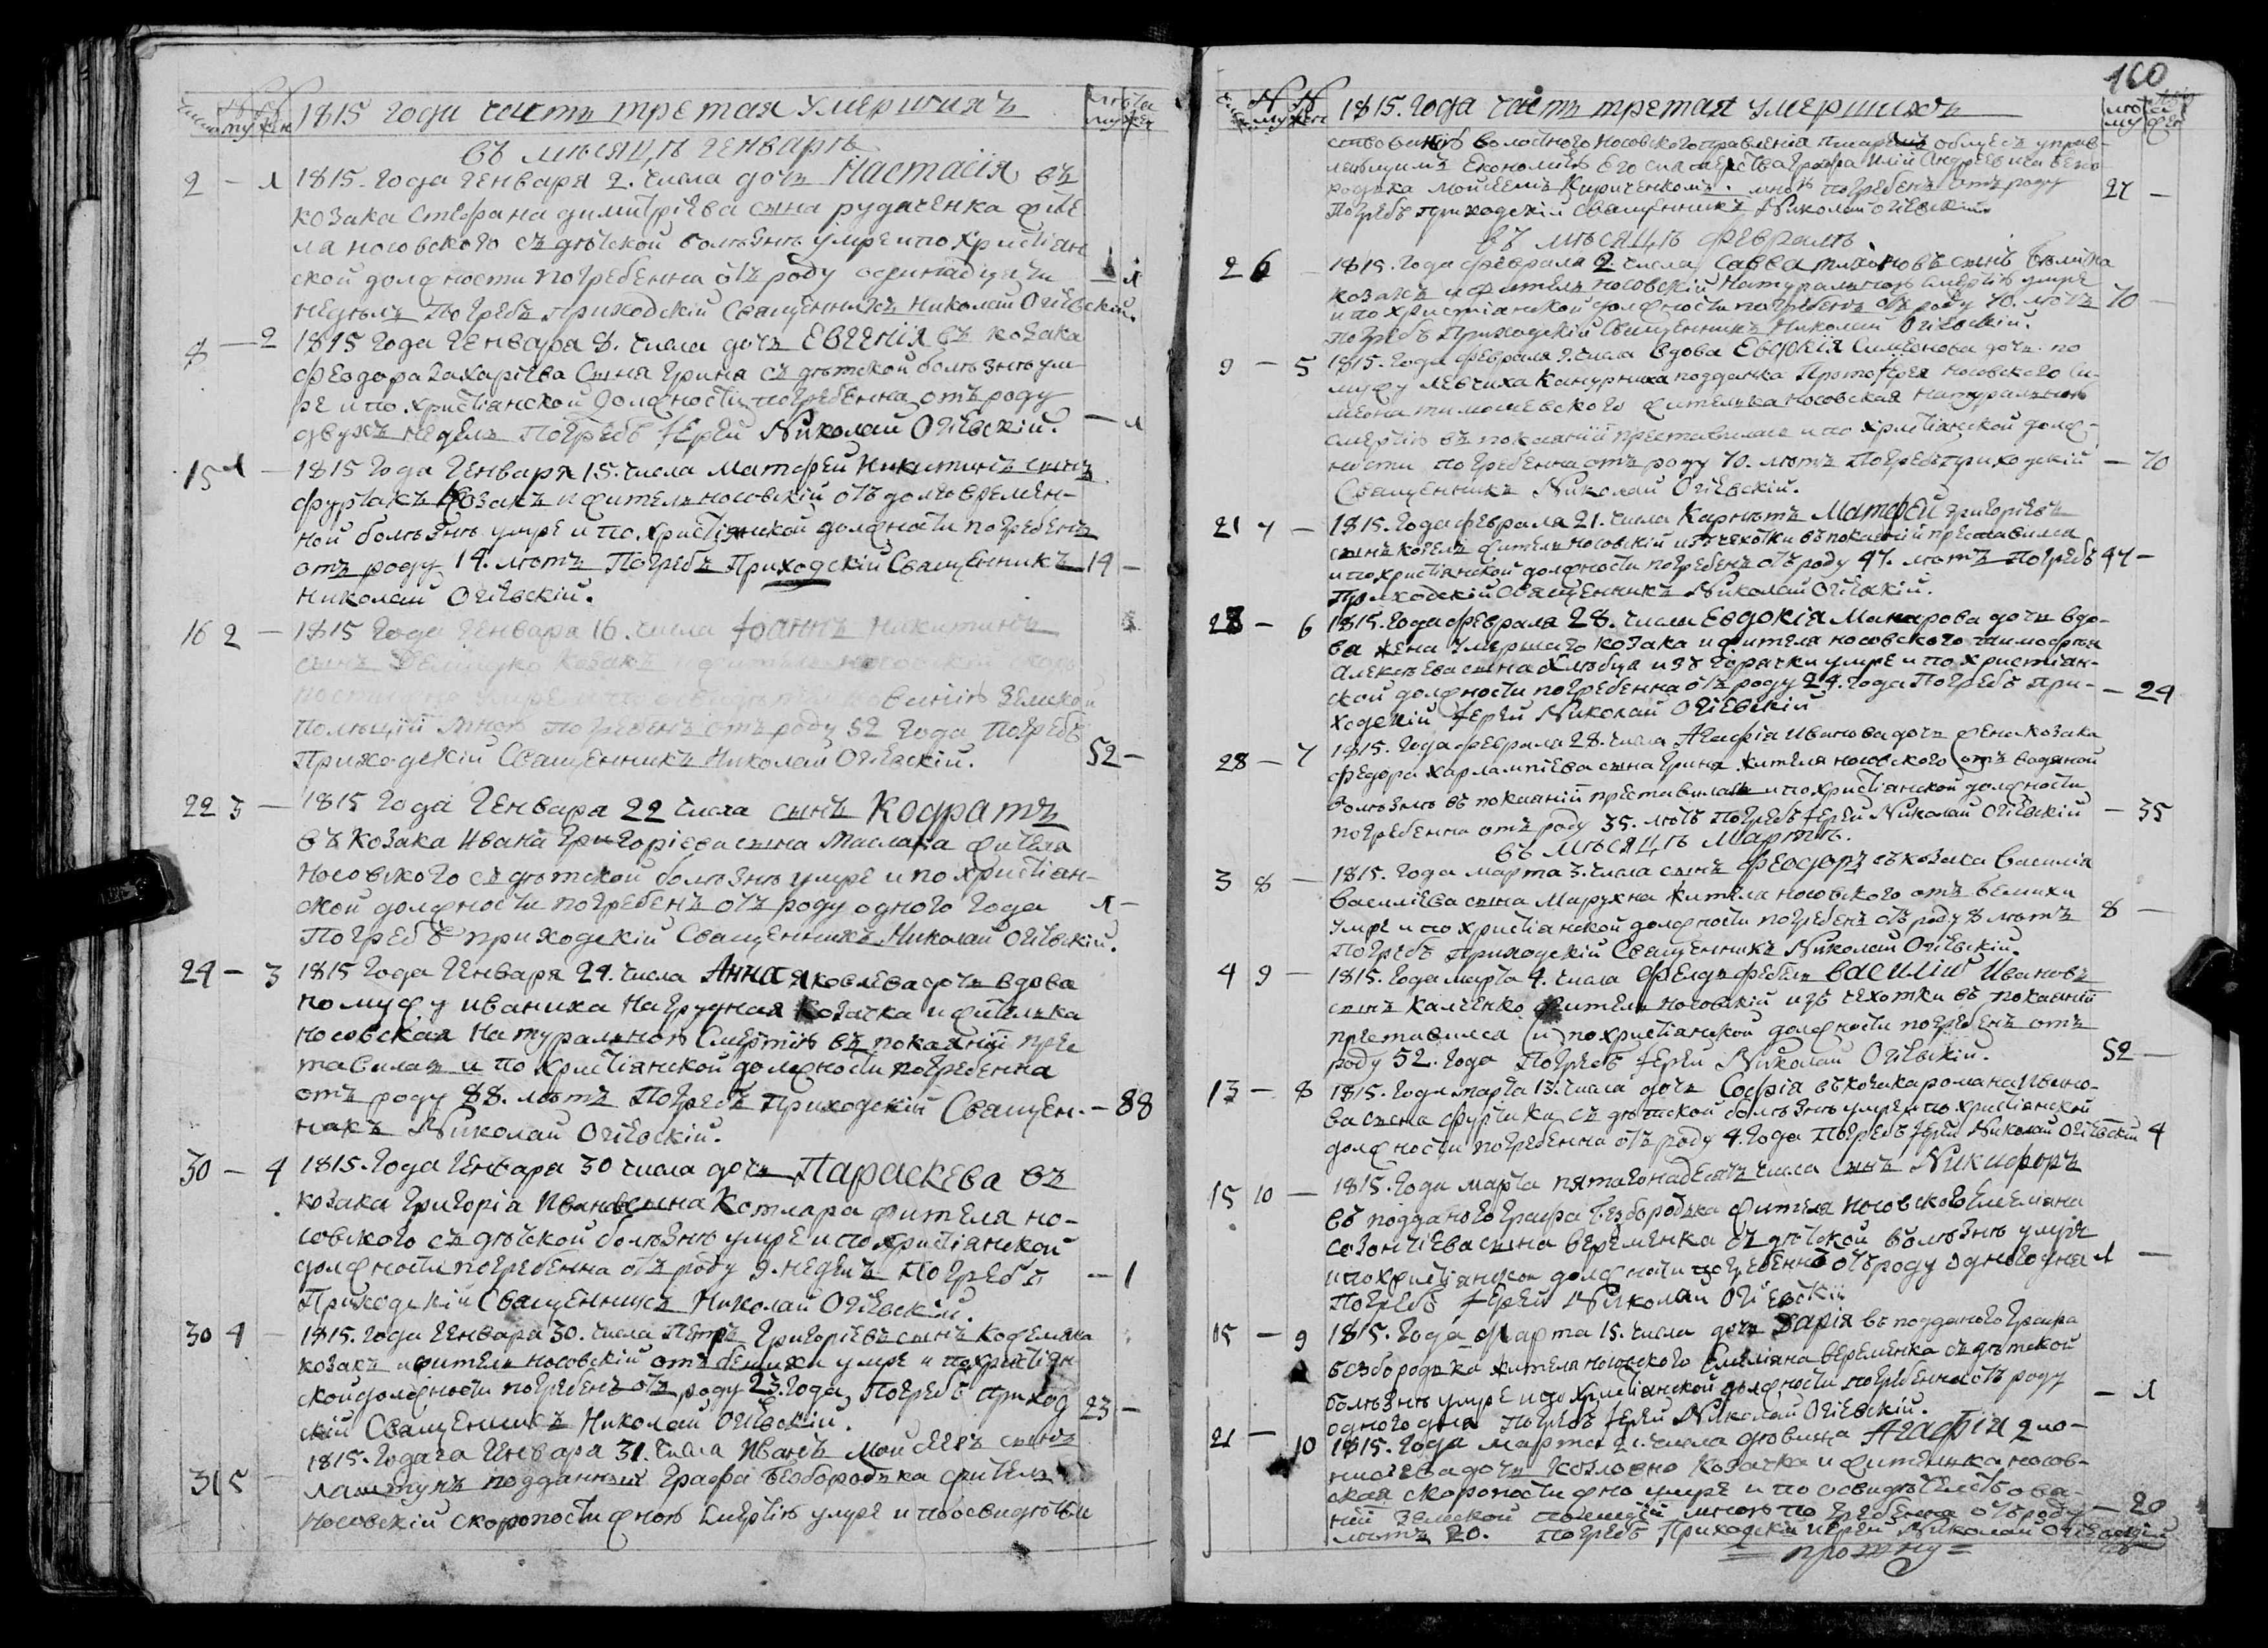 1815 Года часть третая умершихъ
въ мѣсяцѣ Генварѣ
2 – 1 1815. Года Генваря 2. числа дочь Настасія въ
козака Стефана Димитріева сына Рудаченка жите
ля носовского съ дѣтской болѣзнѣ умре и по христіян
ской должности погребенна отъ роду осминадцяти – 1
недѣль Погребъ приходскій Священникъ Николай Огіевскій.
8 – 2 1815 Года Генваря 8. числа дочь Евгенія въ козака
Феодора Захаріева Сына Грина съ дѣтской болѣзнѣ ум
ре и по христіянской должности погребенна отъ роду
двухъ недель Погребъ Іерей Николай Огіевскій. – 1
15 1 – 1815 Года Генваря 15. числа Матфей Никитинъ сынъ
Фурчакъ Козакъ и житель носовскій отъ долговремен-
ной болѣзнѣ умре и по христіянской должности погребенъ
отъ роду 14. лѣтъ Погребъ Приходскій Священникъ 14 –
Николай Огіевскій.
16 2 – 1815 Года Генваря 16. числа Іоаннъ Никитинъ
сынъ козакъ и житель носовскій скоро
постижно умре и по Земской
Полиціи мною погребенъ отъ роду 52 Года Погребъ
Приходскій Священникъ Николай Огіевскій. 52 –
22 3 – 1815 Года Генваря 22 числа сынъ Кодратъ
въ козака Ивана Григоріева сына Маслака жителя
Носовского съ дѣтской болѣзнѣ умре и по христіян-
ской должности погребенъ отъ роду одного Года 1 –
Погребъ приходскій Священникъ Николай Огіевскій.
24 – 3 1815 Года Генваря 24. числа Анна Яковлева дочь вдова
по мужу Иваниха Нагрудная Козачка и жителька
Носовская Натуральною Смертію въ покаяніи прес
тавилась и по христіянской должности погребенна
отъ роду 88. лѣтъ Погребъ Приходскій Священ- – 88
никъ Николай Огіевскій.
30 – 4 1815. Года Генваря 30 числа дочь Параскева въ
козака Григорія Иванова сына Котляра жителя но-
совского съ дѣтской болѣзнѣ умре и по христіянской
должности погребенна отъ роду 9. недель Погребъ – 1
Приходскій Священникъ Николай Огіевскій.
30 4 – 1815. Года Генваря 30. числа Петръ Григоріевъ сынъ Кожемяка
козакъ и житель носовскій отъ бешихи умре и по христіян
ской должности погребенъ отъ роду 23. Года Погребъ приход
скій Священникъ Николай Огіевскій. 23 –
1815. Года Генваря 31. числа Иванъ Мойсеевъ сынъ
31 5 – подданный Графа Безбородька житель
Носовскій скоропостижною смертію умре и по освидѣтель
160
1815. Года часть третая умершихъ
ствованію волостного Носовского правленія писаремъ общесъ управ-
ляющимъ Економіею его сіятельства Графа Иліи Андреевича Безбо
родька Мойсеемъ Кириченкомъ. мною погребенъ отъ роду 27 –
Погребъ приходскій Священникъ Николай Огіевскій.
въ мѣсяцѣ Февралѣ
2 6 – 1815. Года Февраля 2. числа Савва Тихоновъ сынъ
козакъ и житель носовскій Натуральною смертію умре
и по христіянской должности погребенъ отъ роду 70. лѣтъ 70 –
Погребъ Приходскій Священникъ Николай Огіевскій.
9 – 5 1815. Года Февраля 9. числа вдова Евдокія Симеонова дочь по
мужу Левчиха Канурниха подданка Протоіерея носовского Си-
меона Тимошевского жителька носовская Натуральною
смертію въ покаяніи преставилась и по христіянской долж-
ности погребенна отъ роду 70. лѣтъ Погребъ приходскій – 70
Священникъ Николай Огіевскій.
21 7 – 1815. Года Февраля 21. числа Карнетъ Матфей Григоріевъ
сынъ житель носовскій изъ чехотки въ покаяніи преставился
и по христіянской должности погребенъ отъ роду 47. лѣтъ Погребъ 47 –
Приходскій Священникъ Николай Огіевскій.
28 – 6 1815. Года Февраля 28. числа Евдокія Макарова дочь вдо-
ва жена умершаго козака и жителя носовского Тимофея
Алексѣева сына Хлѣбца изъ горячки умре и по христіан-
ской должности погребенна отъ роду 24. Года Погребъ При- – 24
ходскій Іерей Николай Огіевскій
28 – 7 1815. Года Февраля 28. числа Агафія Иванова дочь жена козака
Федора Харлампіева сына Грина жителя носовского отъ водяной
болѣзнѣ въ покаяніи преставилась и по христіянской должности
погребенна отъ роду 35. лѣтъ Погребъ Іерей Николай Огіевскій – 35
въ мѣсяцѣ Мартѣ.
3 8 – 1815. Года Марта 3. числа сынъ Феодоръ въ козака Василія
Василіева сына Марухна жителя носовского отъ бешихи
умре и по христіянской должности погребенъ отъ роду 8 лѣтъ 8 –
Погребъ приходскій Священникъ Николай Огіевскій.
4 9 – 1815. Года Марта 4. числа Фелдъфебель Василій Ивановъ
сынъ Калченко житель носовскій изъ чехотки въ покаяніи
преставился и по христіянской должности погребенъ отъ
роду 52. Года Погребъ Іерей Николай Огіевскій. 52 –
13 – 8 1815. Года Марта 13. числа дочь Софія въ козака Романа Ивано-
ва сына Фурчика съ дѣтской болѣзнѣ умре и по христіянской
должности погребенна отъ роду 4. Года Погребъ Іерей Николай Огіевскій 4
15 10 – 1815. Года Марта пятагонадесять числа сынъ Никифоръ
въ подданого Графа Безбородька жителя Носовского Емеляна
Созонтіева сына Веременка съ дѣтской болѣзнѣ умре
и по христіянской должности погребенъ отъ роду одного дня 1 –
Погребъ Іерей Николай Огіевскій
15 – 9 1815. Года Марта 15. числа дочь Дарія въ подданого Графа
Безбородька жителя носовского Емеляна Веременка съ дѣтской
болѣзнѣ умре и по христіянской должности погребенна отъ роду – 1
одного дня Погребъ Іерей Николай Огіевскій.
21 – 10 1815. Года Марта 21. числа дѣвица Агафія
дочь Козловна Козачка и жителька носов-
ская скоропостижно умре и по освидѣтельствова-
ніи Земской полиціи мною погребенна отъ роду – 20
лѣтъ 20. Погребъ Приходскій Іерей Николай Огіевскій